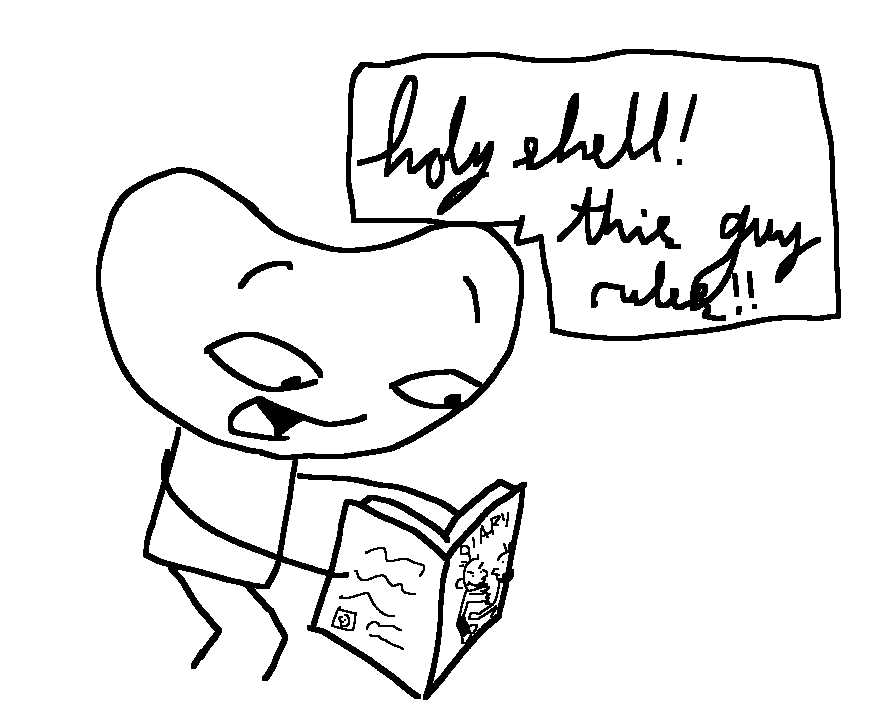 holy shell!
this guy
rules!!
DIARY